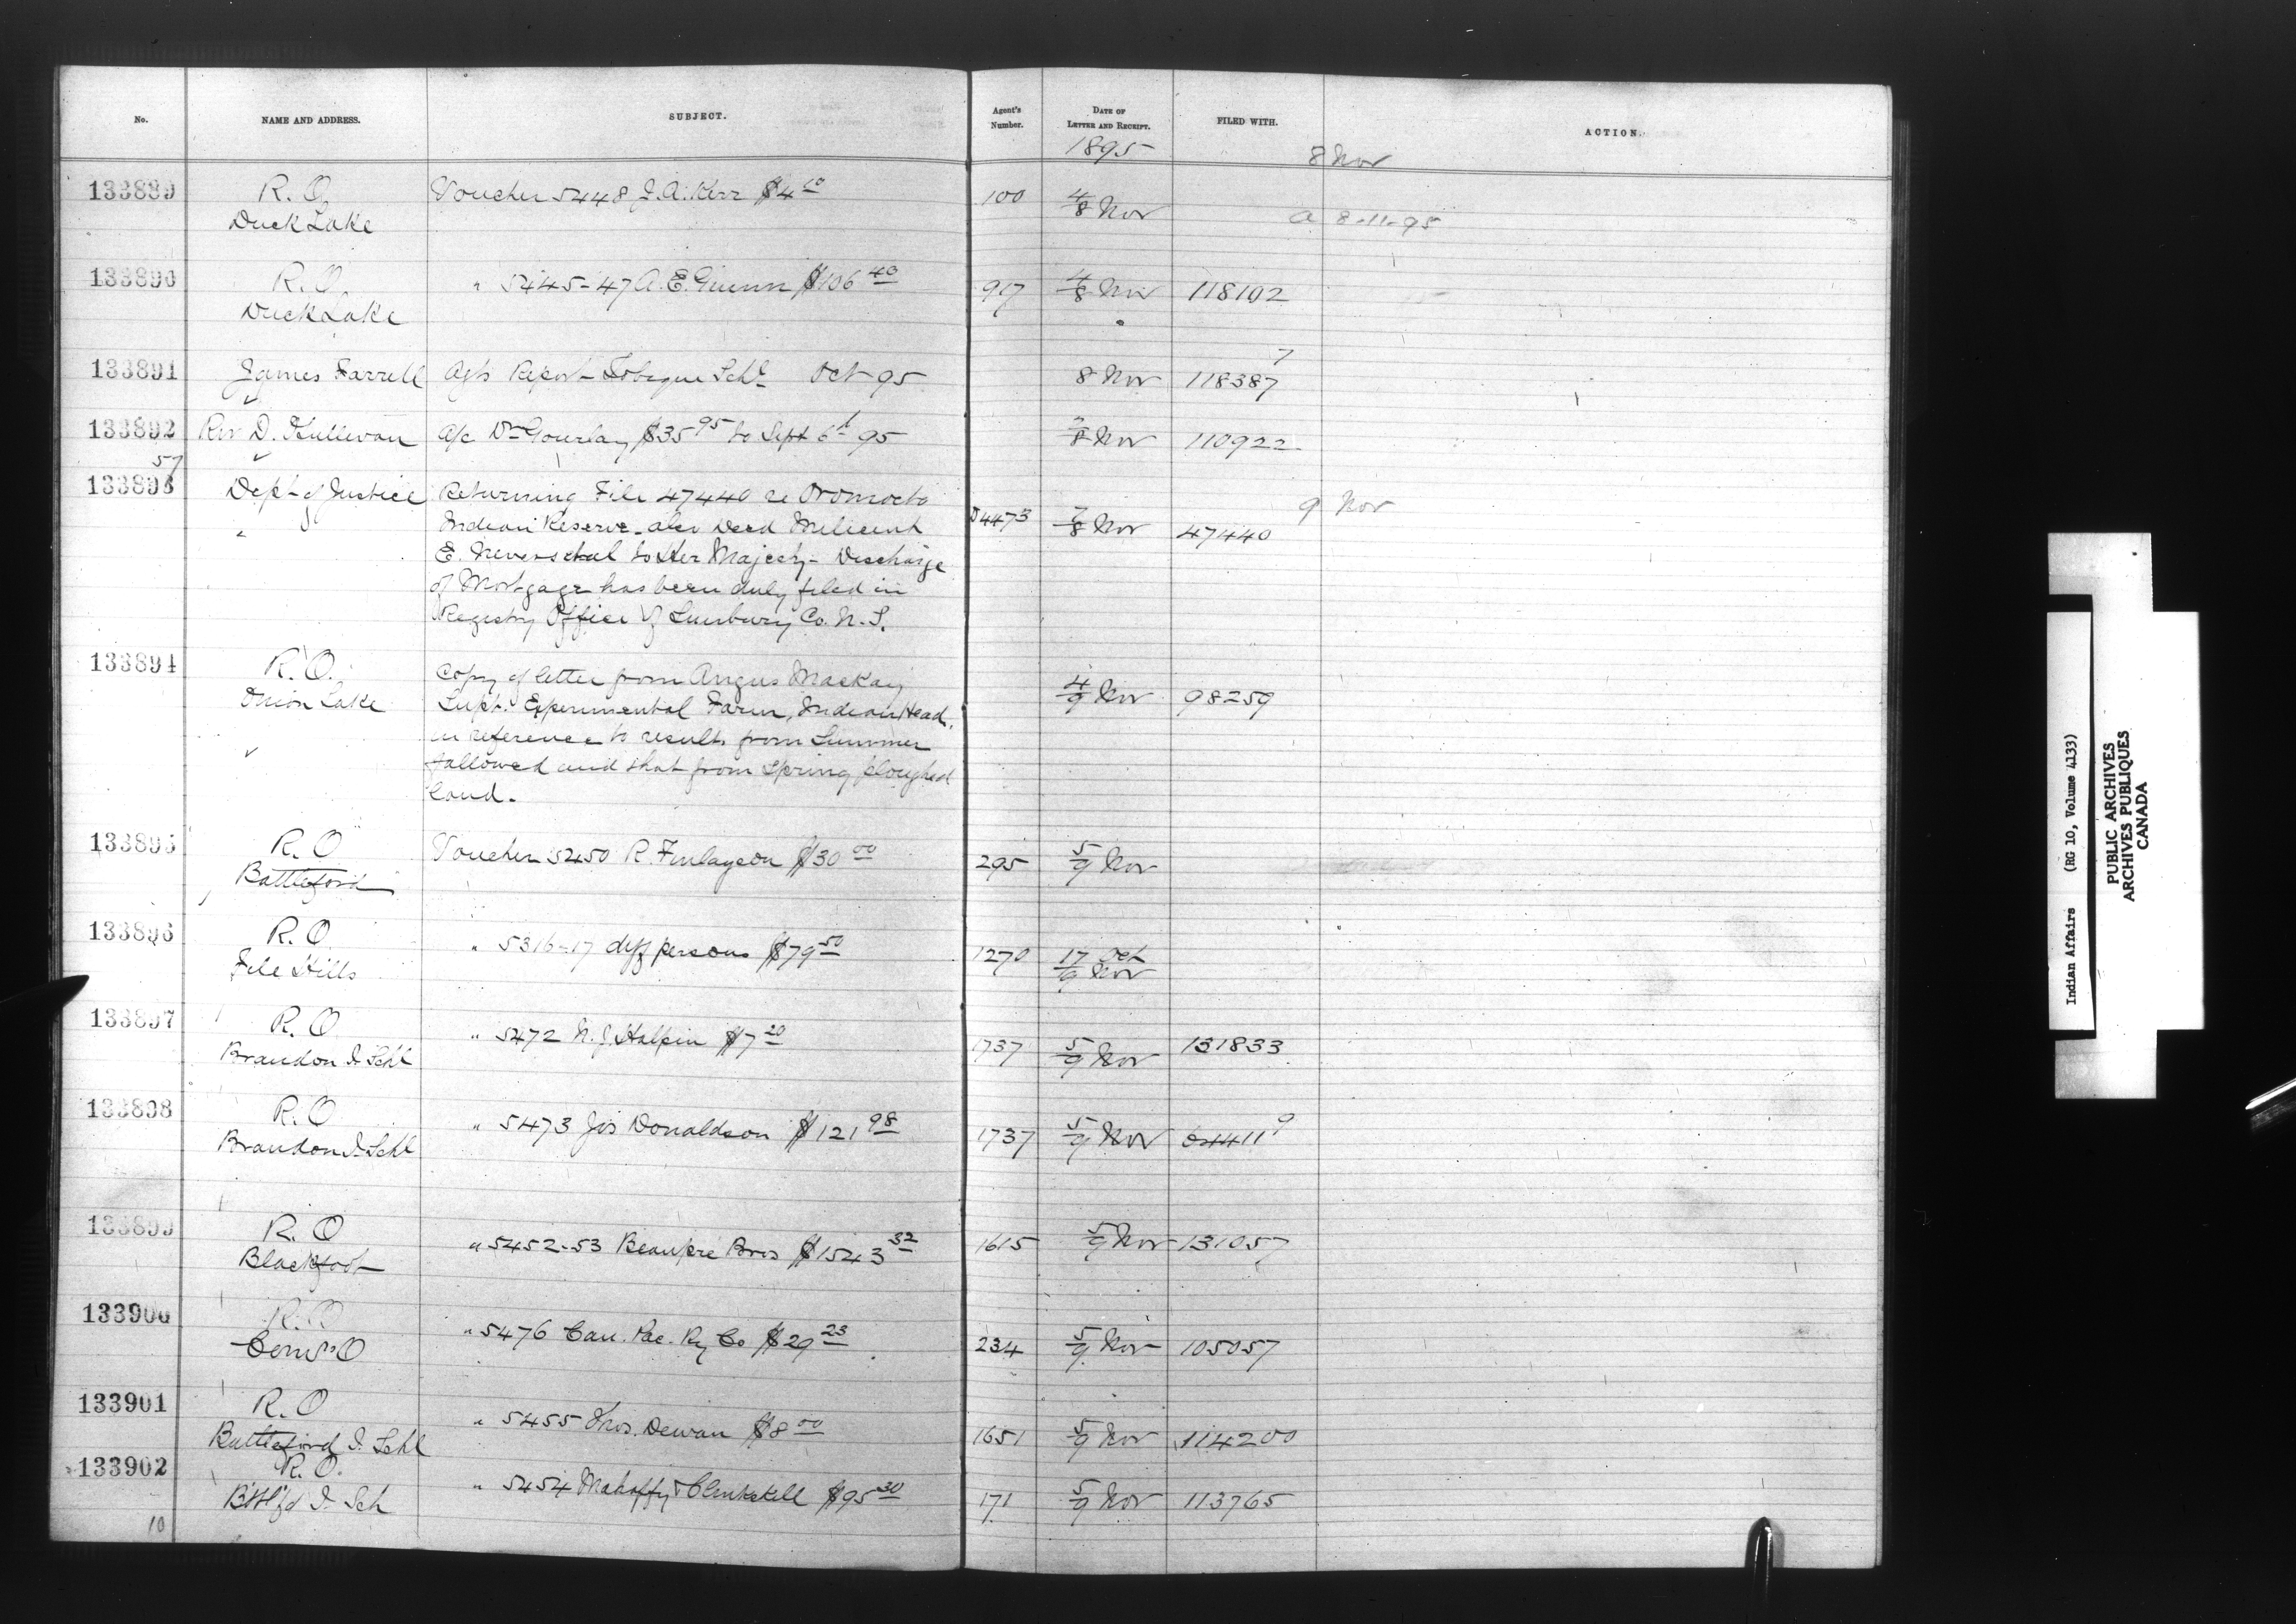 No. NAME AND ADDRESS. SUBJECT. Agent's Number. DATE OF LETTER AND RECEIPT. FILED WITH. ACTION.
1895
8 Nov
133889 R. O. Voucher 5448 J. A. Kerr $4 100 4/8 Nov
Duck Lake a 8-11-95
133890 R. O. " 5445-47 A. E. $106 40 917 4/8 Nov 118102
Duck Lake
133891 James Farrell Ag's Report Tobique Schl Oct 95 8 Nov 118387 7
133892 Rev D. a/c Dr Gourlay $35 95 to Sept 6th 95 7/8 Nov 110922
57
133893 Dept of Justice Returning File 47440 re Oromocto
Indian Reserve also Deed Milicent D4473 7/8 Nov 47440 9 Nov
E. et al to Her Majesty - Discharge
of Mortgage has been duly filed in
Registry Office of Sunbury Co. N. S.
133894 R. O. Copy of letter from Angus Mackay
Onion Lake Supt. Experimental Farm, Indian Head, 4/9 Nov 98259
in reference to results from Summer
fallowed and that from Spring ploughed
land.
133895 R. O Voucher 5450 R. Finlayson $30 00 295 5/9 Nov
Battleford
133896 R. O " 5316-17 diff persons $79 50 1270 17 Oct
File Hills 9 Nov
133897 R. O " 5472 N. J. Halpin $7 20 1737 5/9 Nov 131833
Brandon I. Schl
133898 R. O " 5473 Jos Donaldson $121 98 1737 5/9 Nov
Brandon I. Schl
133899 R. O " 5452-53 Beaupre Bros $1543 32 1615 5/9 Nov 131057
Blackfoot
133900 R. O " 5476 Can. Pac. Ry Co $29 23 234 5/9 Nov 105057
Comr's O
133901 R. O " 5455 Thos. Dewan $8 00 1651 5/9 Nov 114200
Battleford I. Schl
133902 R. O. " 5454 Mahaffy & Clinkskill $95 30 171 5/9 Nov 113765
B'ttl'fd I. Sch
10
Indian Affairs (RG 10, Volume 4133)
PUBLIC ARCHIVES
ARCHIVES PUBLIQUES
CANADA